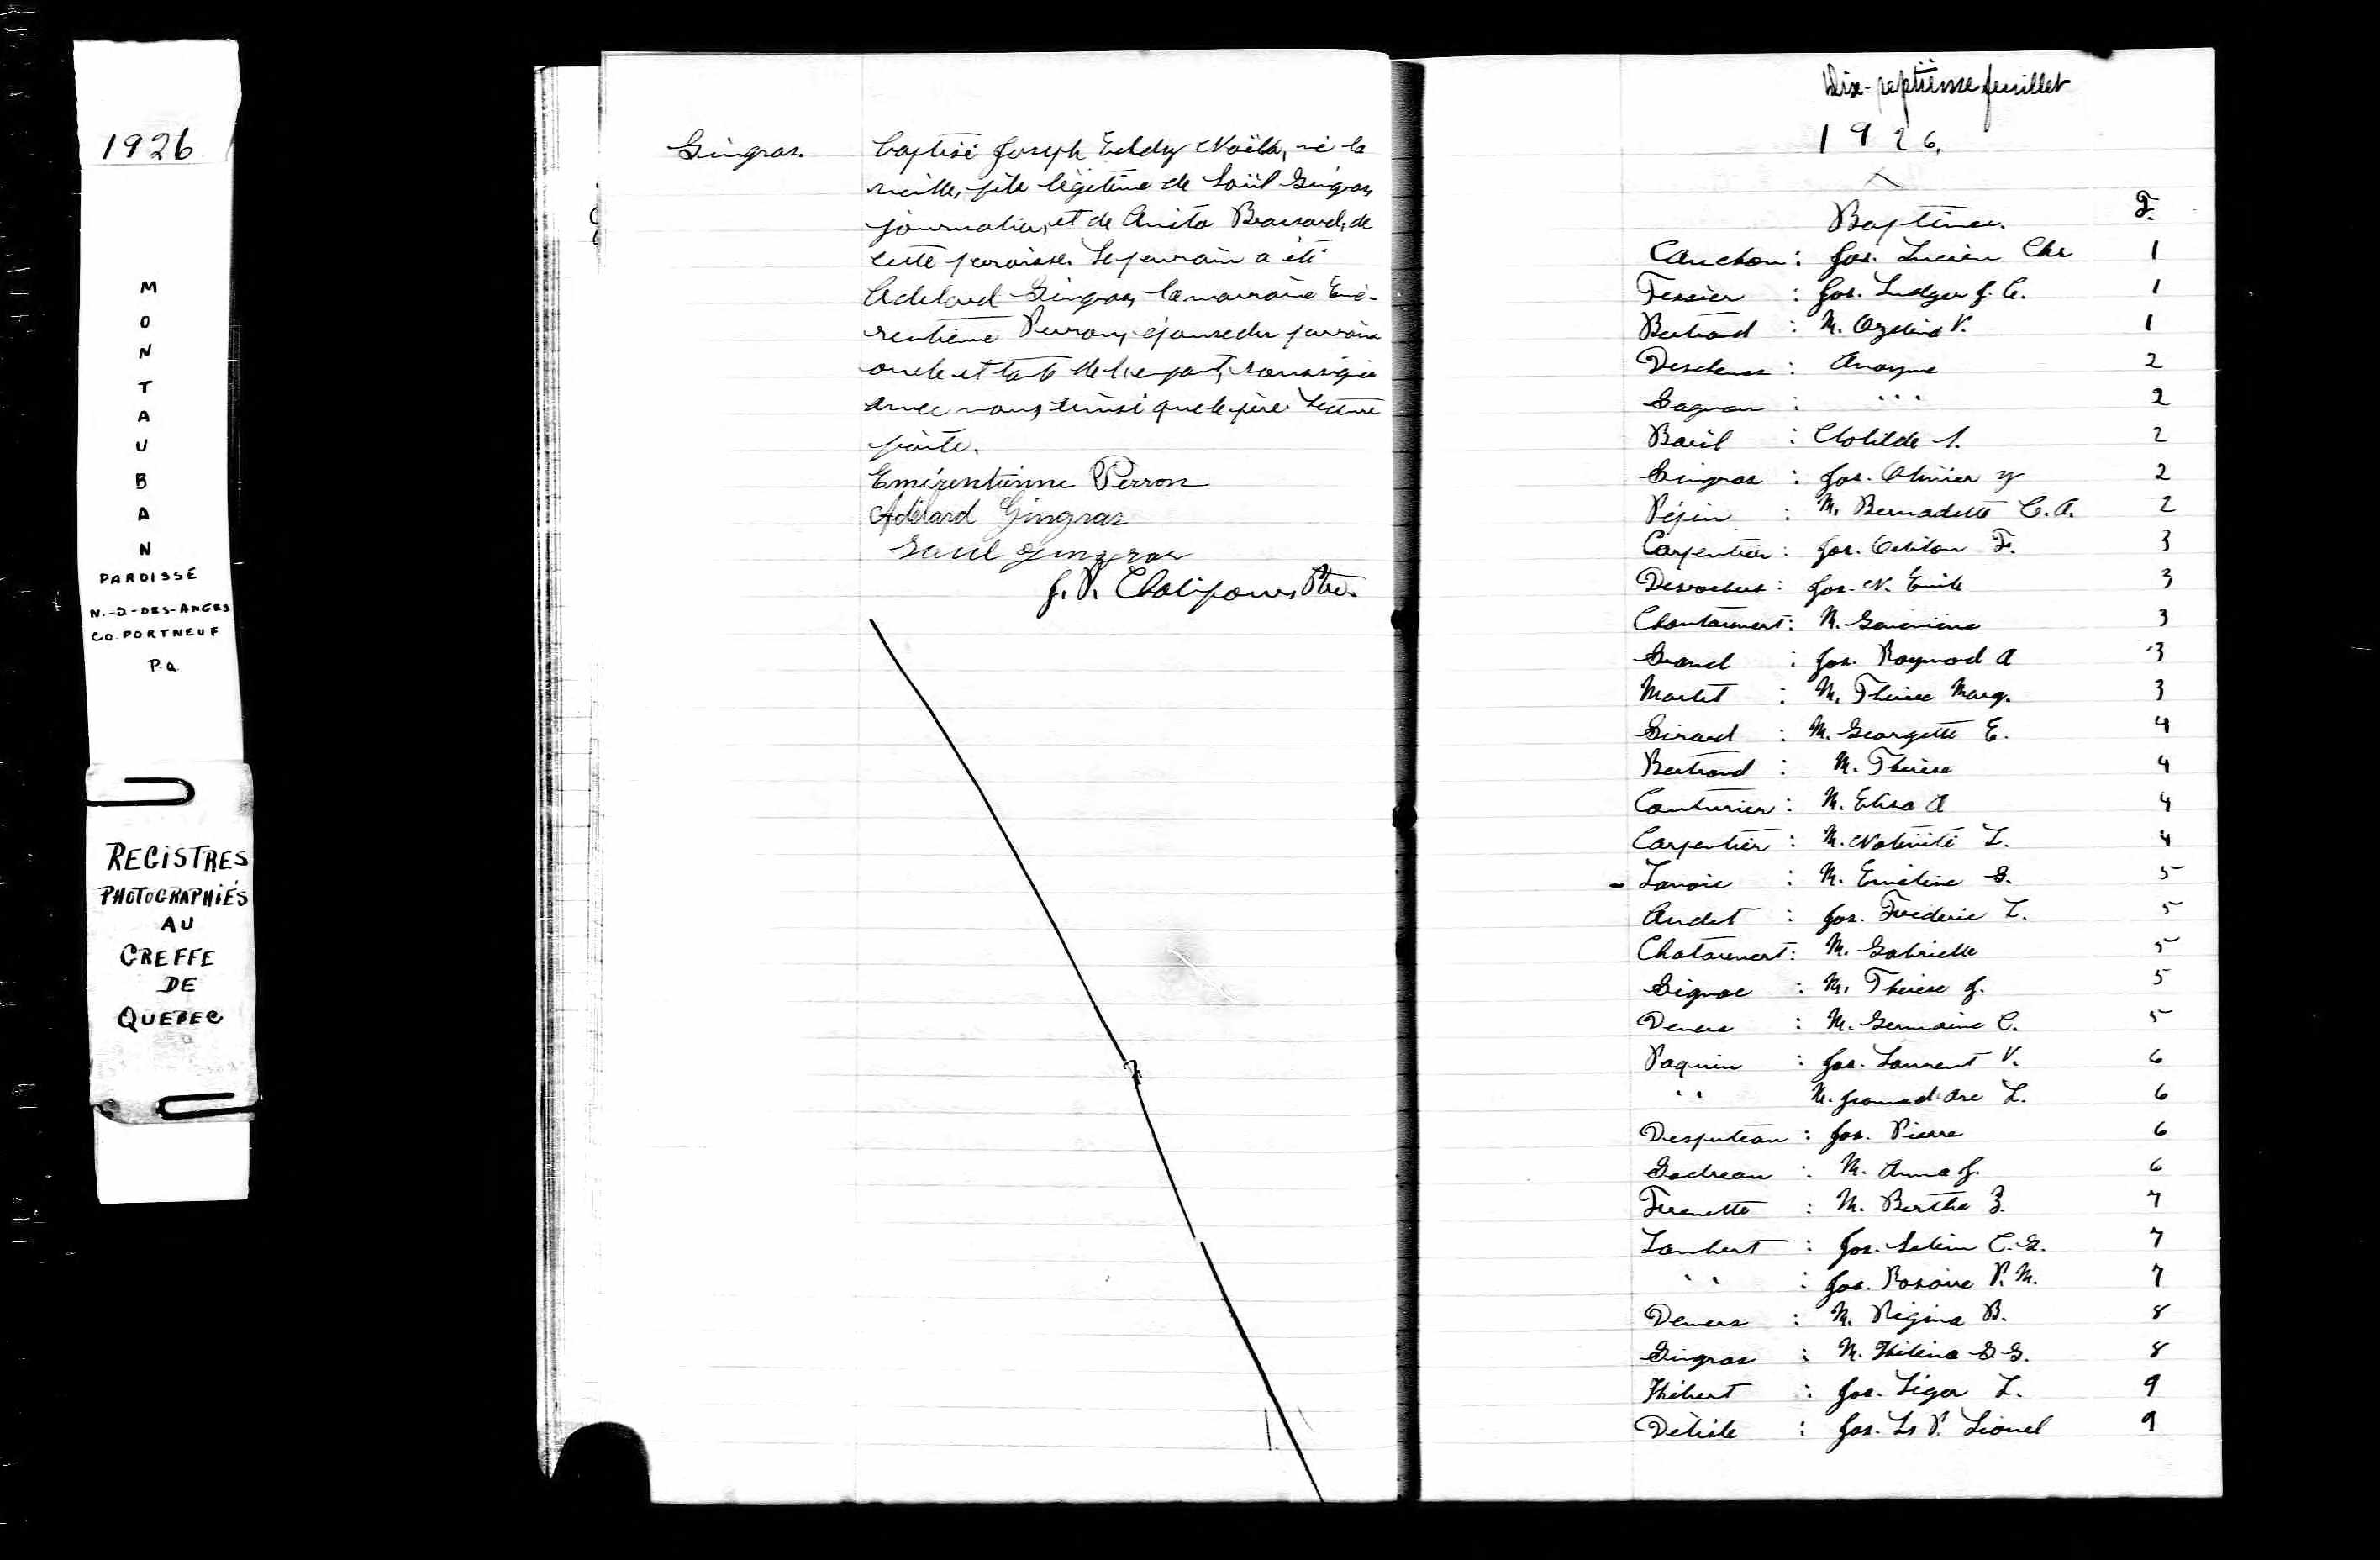 1926
M
O
N
T
A
U
B
A
N
PAROISSE
N.-D-DES-ANGES
CO. PORTNEUF
P.Q.
REGISTRES
PHOTOGRAPHIÉS
AU
GREFFE
DE
QUEBEC
Gingras.
baptisé Joseph Eddy Noël, né la
veille, fils légitime de Saül Gingras,
journalier, et de Anita Brassard, de
cette paroisse. Le parrain a été
Adelard Gingras, la marraine Emé-
rentienne Perron, épouse du parrain
oncle et tante de l'enfant, soussignés
avec nous, ainsi que le père. Lecture
faite.
Emérentienne Perron
Adélard Gingras
Saül Gingras
J. P. Chalifour, Ptre.
Dix-septième feuillet
1926,
Baptêmes. F.
Cauchon : Jos. Lucien Chs 1
Tessier : Jos. Ludger J. C. 1
Bertrand : M. V. 1
Deschenes : Anonyme 2
Gagnon : " 2
Baril : Clotilde 2
Gingras : Jos. Olivier 2
Pépin : M. Bernadette C. A. 2
Carpentier : Jos. F. 3
Desrochers : Jos. N. Emile 3
Chantauvert : M. Geneviève 3
Grand : Jos. Raymond A 3
Martel : M. Thérèse Marg. 3
Girard : M. Georgette E. 4
Bertrand : M. Thérèse 4
Couturier : M. Elisa A 4
Carpentier : M. Nativité L. 4
- Lavoie : M. Emeline G. 5
Audet : Jos. Frédéric L. 5
Chatauvert : M. Gabrielle 5
Gignac : M. Thérèse J. 5
Demers : M. Germaine C. 5
Paquin : Jos. Laurent V. 6
" M. Jeanne d'Arc L. 6
Desputeau : Jos. Pierre 6
Godreau : M. Anna J. 6
Frenette : M. Berthe Z. 7
Lambert : Jos. C. G. 7
" : Jos. Rosaire P. M. 7
Demers : M. Régina B. 8
Gingras : M. G. G. 8
Thibert : Jos. Léger L. 9
Delisle : Jos. Ls P. Lionel 9